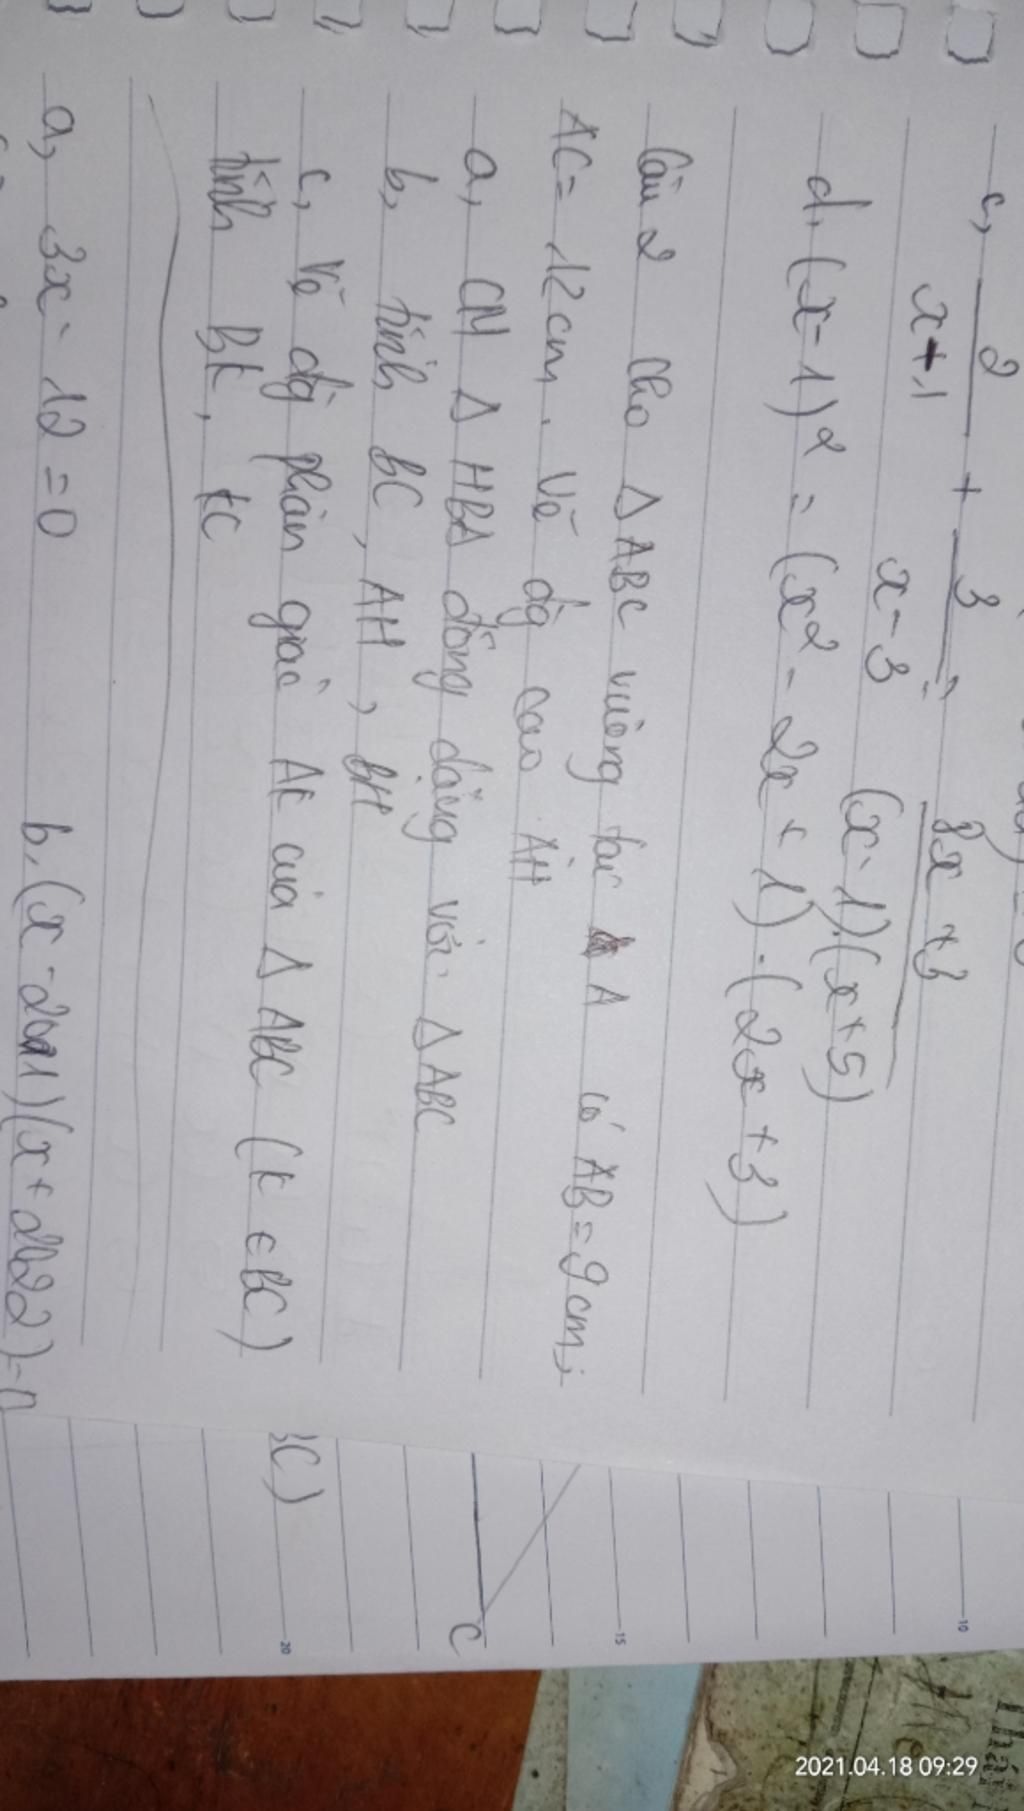 c, 2/(x+1) + 3/(x-3) = (8x+3)/((x-1).(x+5))
d, (x-1)² = (x² - 2x + 1).(2x+3)
Câu 2 Cho Δ ABC vuông tại A có AB = 9cm;
AC = 12cm. Vẽ đg cao AH
a, CM Δ HBA đồng dạng với Δ ABC
b, tính BC, AH, BH
c, Vẽ đg phân giác AK của Δ ABC (K ∈ BC)
tính BK, KC
a, 3x - 12 = 0 b, (x - 2021)(x + 2022) = 0
BC)
C
10
15
20
2021.04.18 09:29